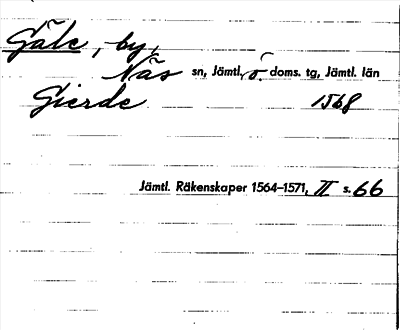 Gäle, by,
Näs sn, Jämtl. ö. doms. tg, Jämtl. län
Gierde 1568
Jämtl. Räkenskaper 1564–1571, II s. 66